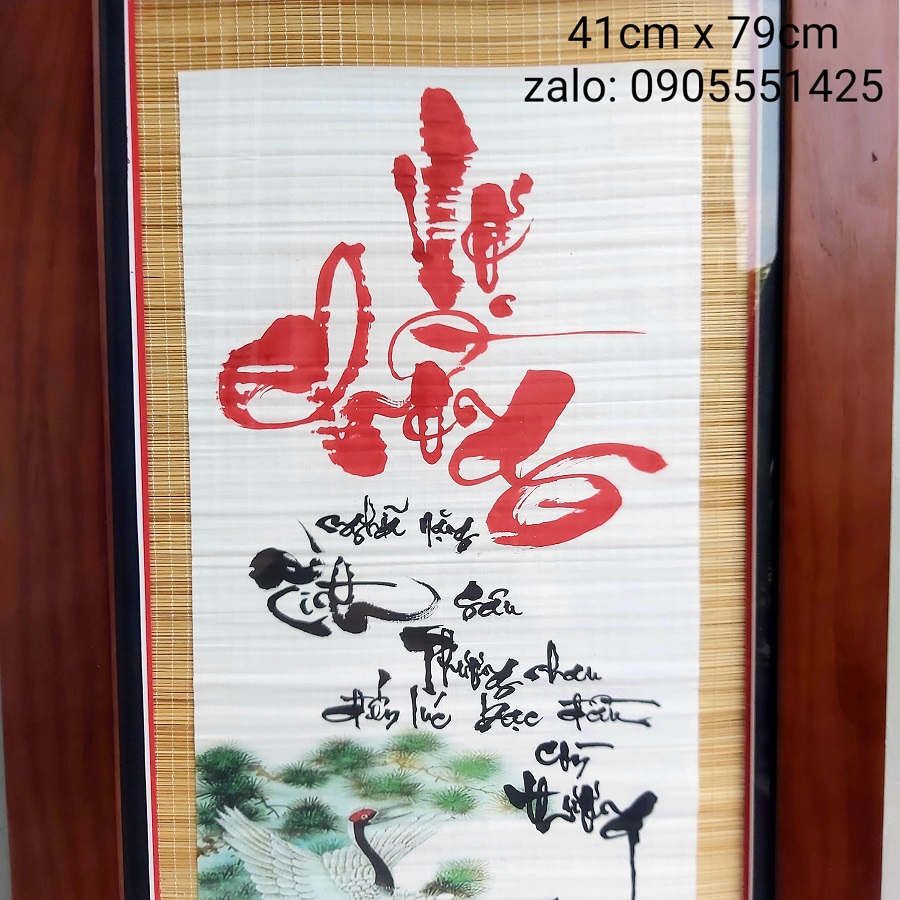 41cm x 79cm
zalo: 0905551425
Vợ
Chồng
Nghĩa nặng
Tình sâu
Thương nhau
đến lúc bạc đầu
còn
thương